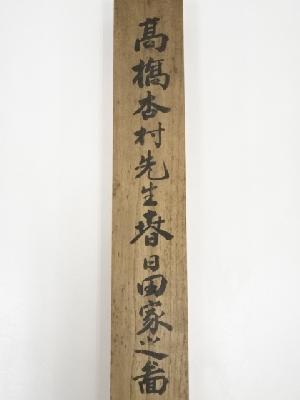 髙橋杏村先生春日田家之圖